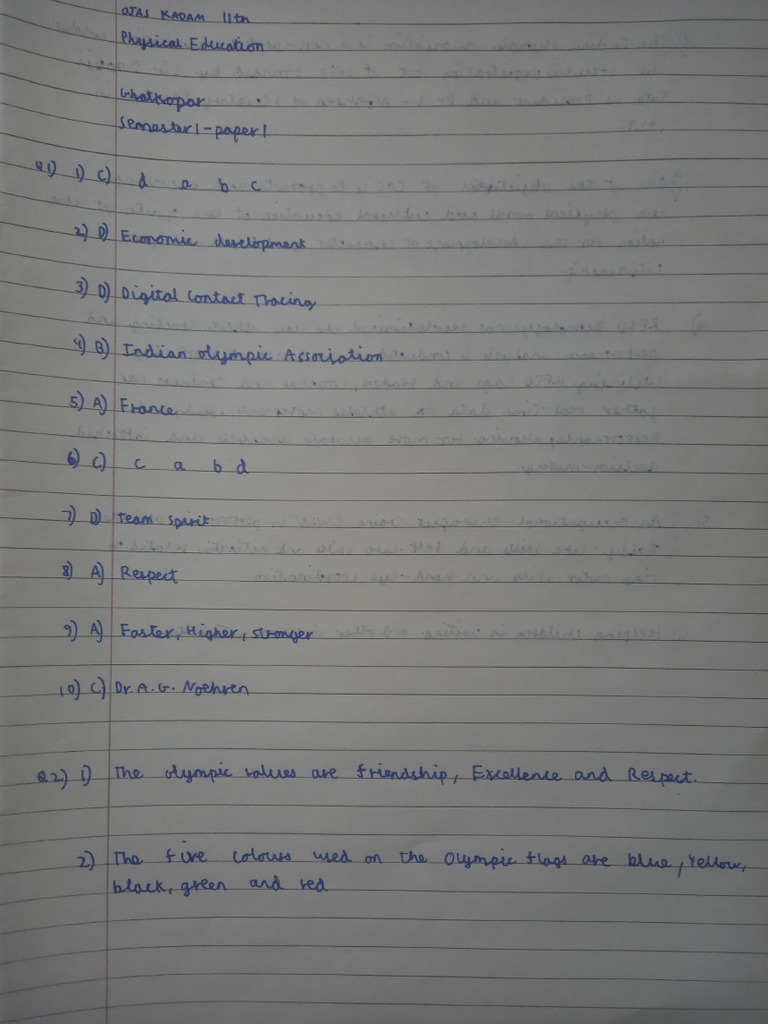 OJAS KADAM 11th
Physical Education
Ghatkopar
Semester 1 - paper 1
Q1) 1) C) d a b c
2) D) Economic development
3) D) Digital Contact Tracing
4) B) Indian olympic Association
5) A) France
6) C) c a b d
7) D) Team spirit
8) A) Respect
9) A) Faster, Higher, stronger
10) C) Dr. A. G. Noehren
Q2) 1) The olympic values are friendship, Excellence and Respect.
2) The five colours used on the Olympic flags are blue, Yellow,
black, green and red